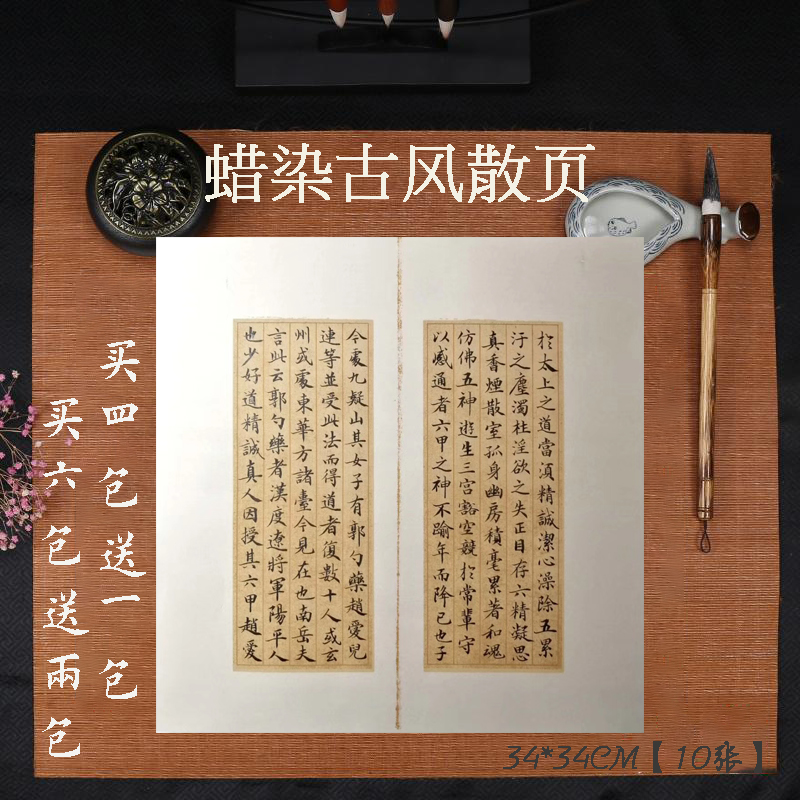 蜡染古风散页
於太上之道當須精誠潔心澡除五累
汙之塵濁杜淫欲之失正目存六精凝思
真香煙散室孤身幽房積毫累著和魂
仿佛五神遊生三宮豁空競於常輩守
以感通者六甲之神不踰年而降已也子
今處九疑山其女子有郭勺藥趙愛兒
連等並受此法而得道者復數十人或玄
州或處東華方諸臺今見在也南岳夫
言此云郭勺藥者漢度遼將軍陽平人
也少好道精誠真人因授其六甲趙愛
买四包送一包
买六包送兩包
34*34CM【10张】